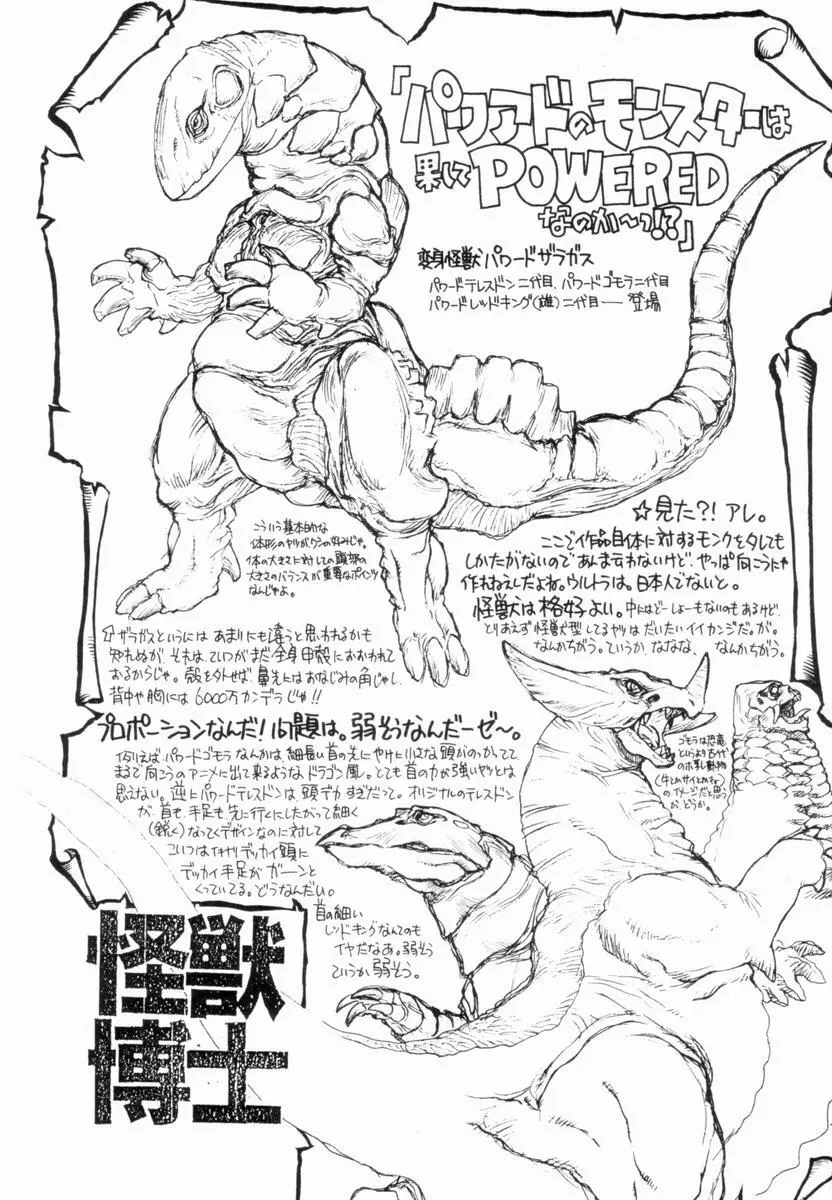 「パワアドのモンスターは
果して POWERED
なのか〜っ!?」
変身怪獣 パワードザラガス
パワードテレスドン二代目、パワードゴモラ二代目
パワードレッドキング(雄)二代目── 登場
☆見た?! アレ。
ここで作品自体に対するモンクをタレても
しかたがないのであんま言わないけど、やっぱ向こうにゃ
作れねえんだよね。ウルトラは。日本人でないと。
怪獣は格好よい。中にはどーしょーもないのもあるけど、
とりあえず怪獣型してるヤツはだいたいイイカンジだ。が。
なんかちがう。ていうか、ななな、なんかちがう。
こういう基本的な
体形のヤツがワシの好みじゃ。
体の大きさに対しての頭部の
大きさのバランスが重要なポインツ
なんじゃよ。
ザラガスというにはあまりにも違うと思われるかも
知れぬが、それは、こいつがまだ全身甲殻におおわれて
おるからじゃ。殻を外せば、鼻先にはおなじみの角じゃし、
背中や胸には6000万カンデラじゅ!!
プロポーションなんだ!問題は。弱そうなんだーゼ〜。
例えば、パワードゴモラなんかは、細長い首の先にやけに小さな頭がのっかてて
まるで向こうのアニメに出て来るようなドラゴン風。とても首の力が強いヤツとは
思えない。逆にパワードテレスドンは、頭デカすぎだって。オリジナルのテレスドン
が、首も、手足も、先に行くにしたがって細く
(鋭く)なってくデザインなのに対して
こいつはイキナリデッカイ頭に
デッカイ手足が ガーンと
くっていてる。どうなんだい。
首の細い
レッドキングなんてのも
イヤだなあ。弱そう
ていうか 弱そう。
ゴモラは恐竜
というより古代
のホ乳動物
(牛とかサイとかね)
のイメージだと思う
が、どうか。
怪獣
博士